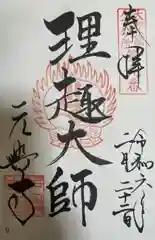 奉拝
令和六年
二月二十二日
理趣大師
元興寺